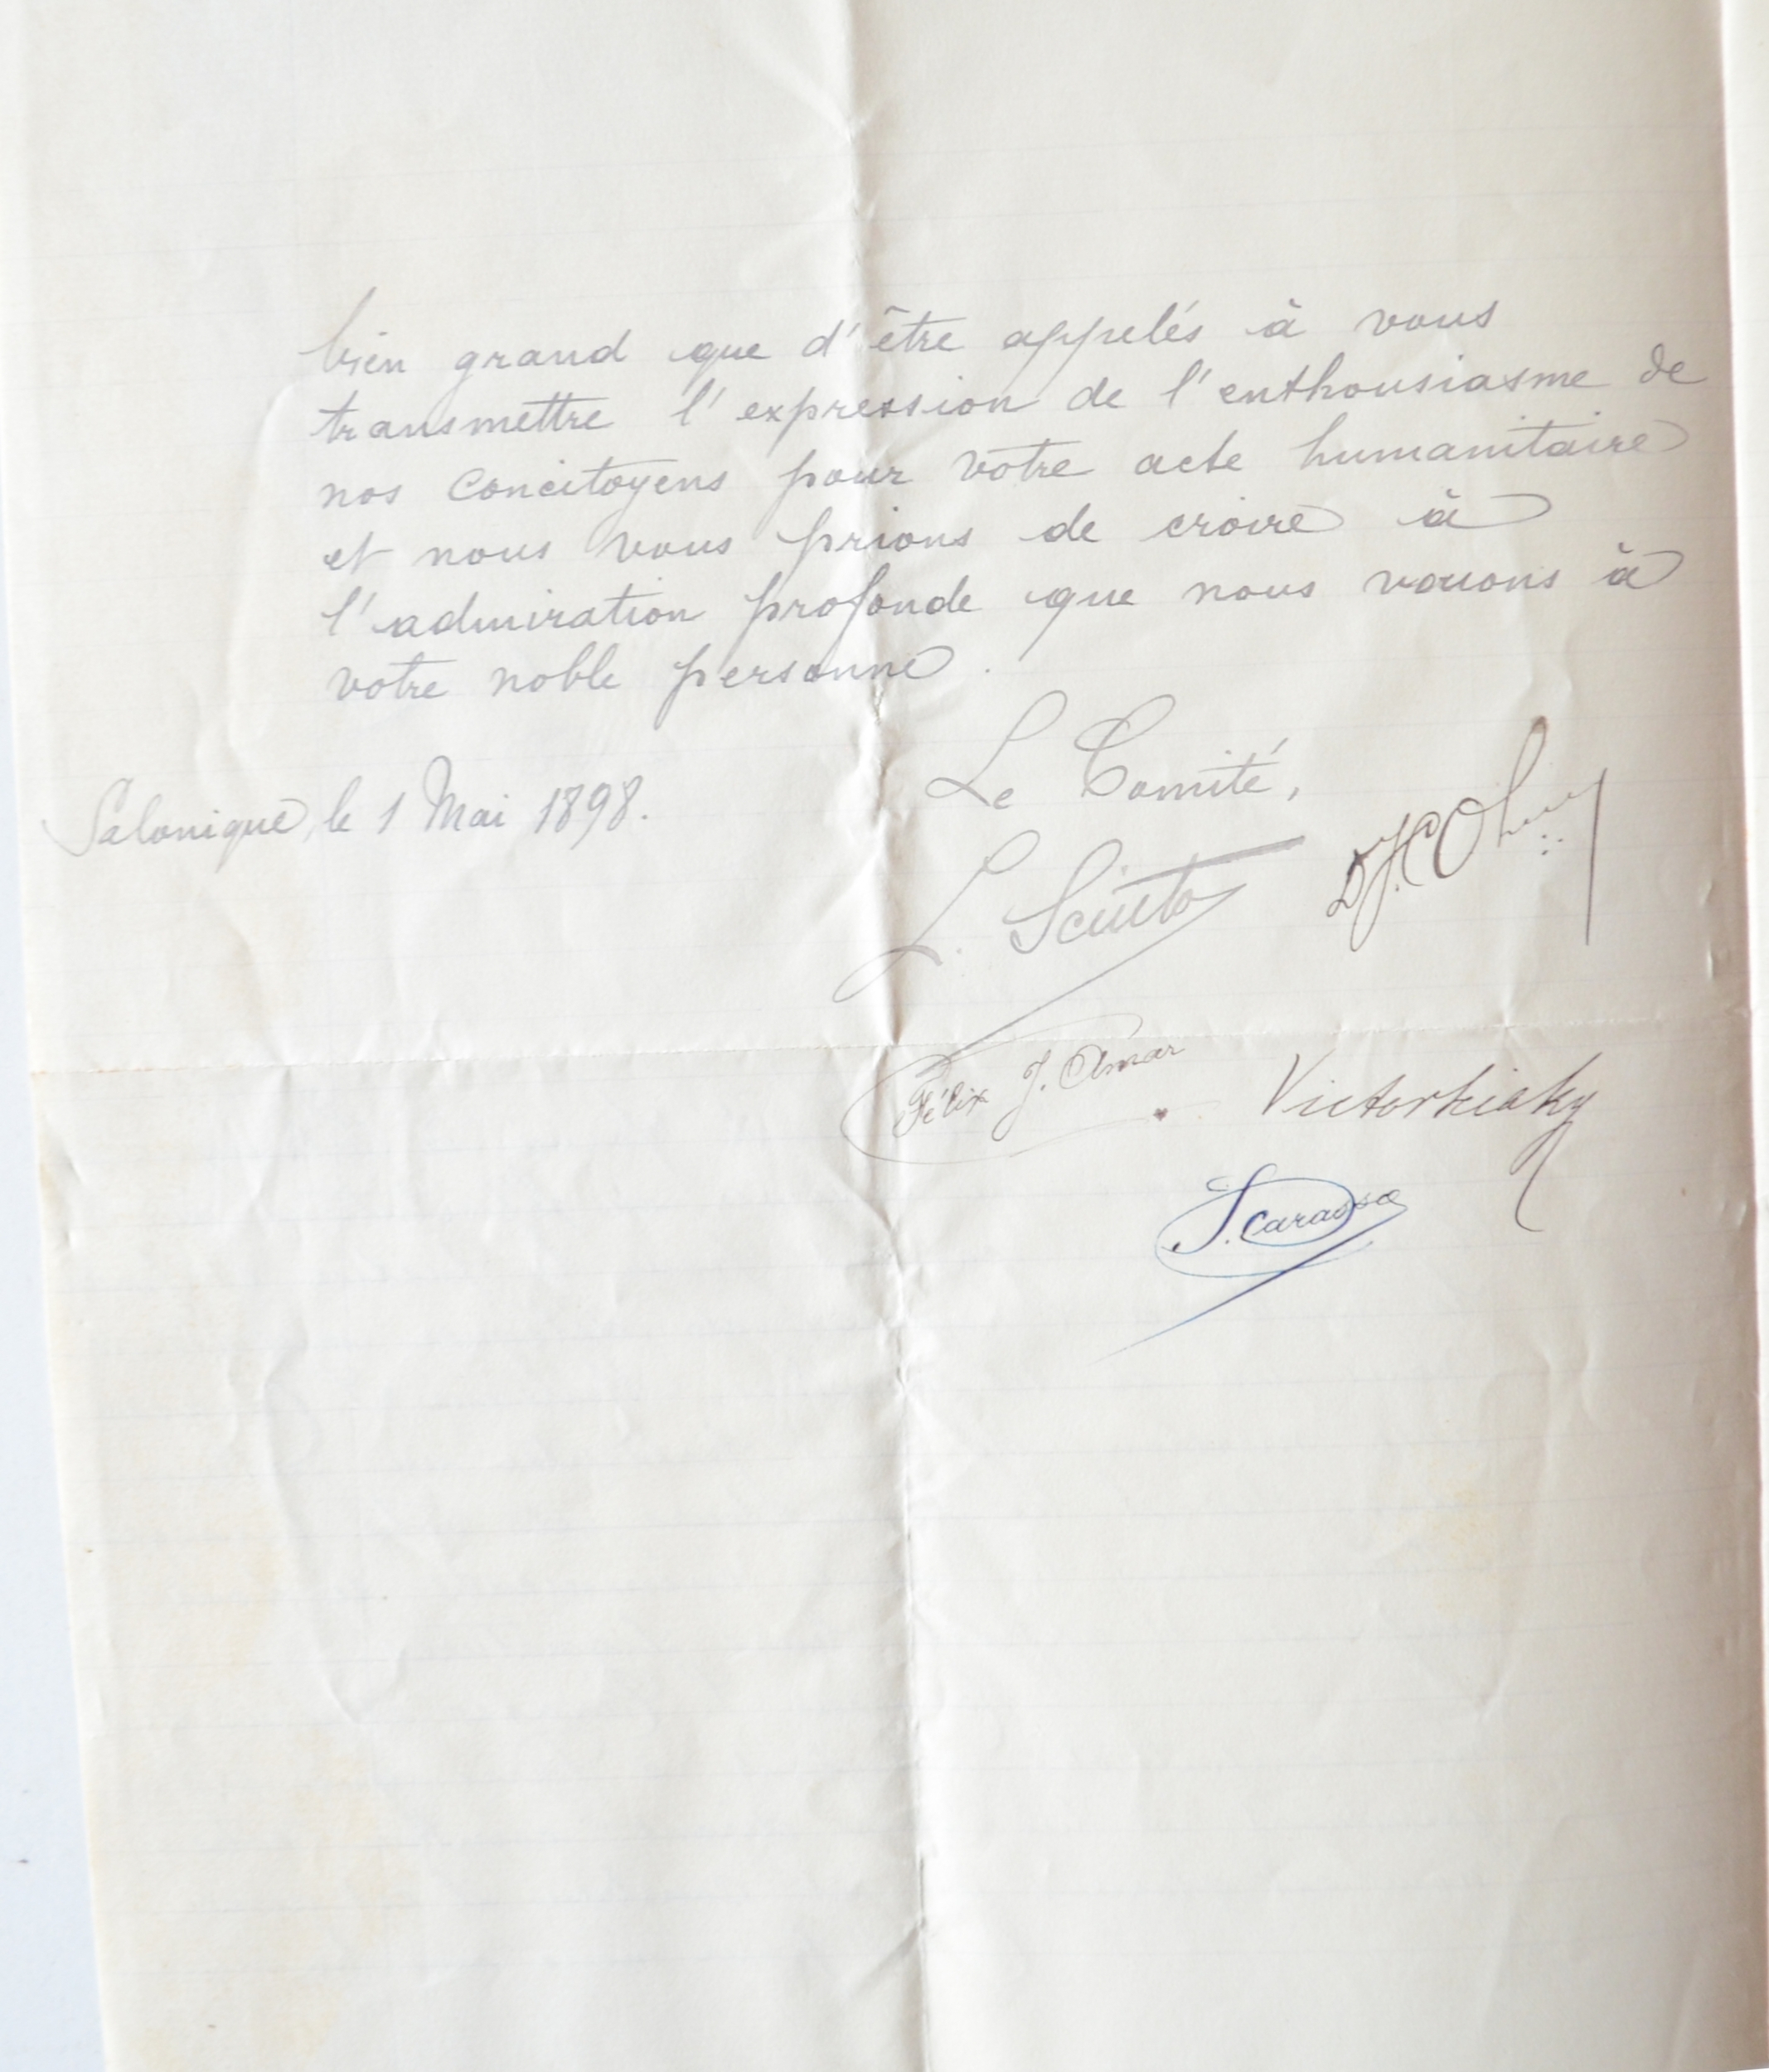 bien grand que d'être appelés à vous
transmettre l'expression de l'enthousiasme de
nos concitoyens pour votre acte humanitaire
et nous vous prions de croire à
l'admiration profonde que nous vouons à
votre noble personne.
Le Comité,
Salonique, le 1 Mai 1898.
L. Sciuto
Félix J. Amar
S. Carasso